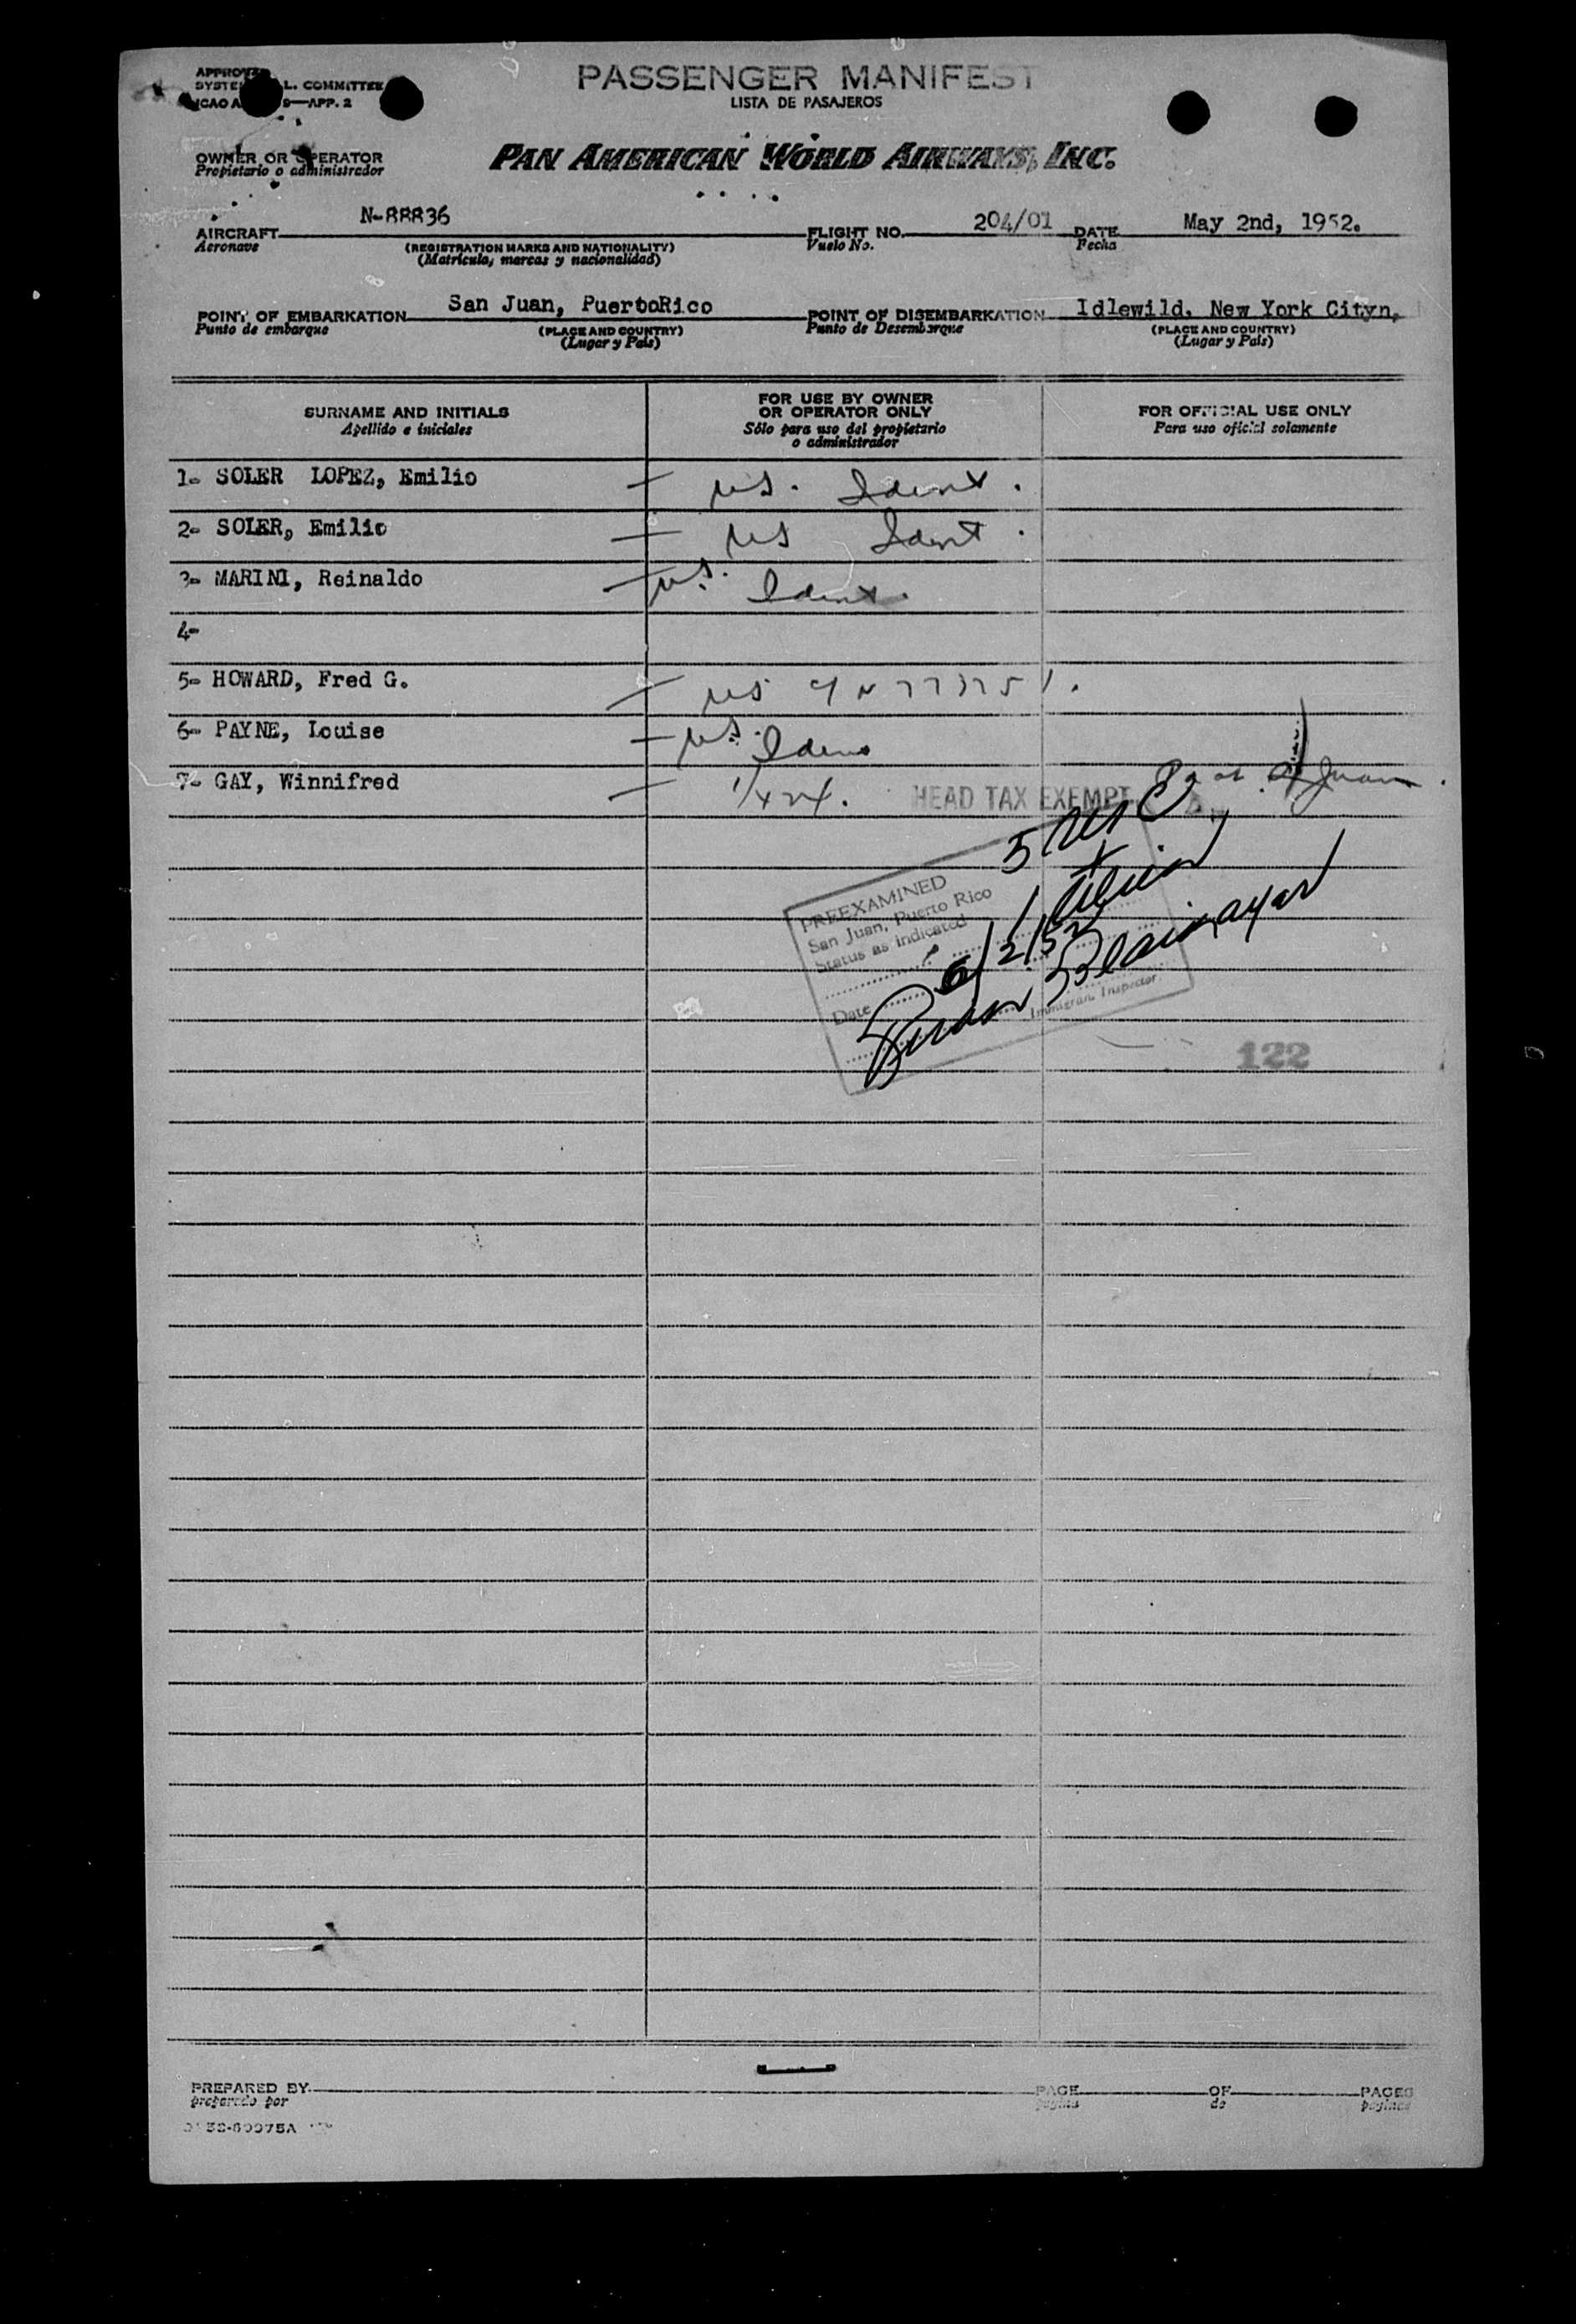 PASSENGER MANIFEST
LISTA DE PASAJEROS
L. COMMITTEE
APP. 2
OWNER OR OPERATOR
Propietario o administrador
PAN AMERICAN WORLD AIRWAYS, INC.
AIRCRAFT N-88836 FLIGHT NO. 204/01 DATE May 2nd, 1952.
Aeronave (REGISTRATION MARKS AND NATIONALITY) Vuelo No. Fecha
(Matrícula, marcas y nacionalidad)
POINT OF EMBARKATION San Juan, PuertoRico POINT OF DISEMBARKATION Idlewild. New York Cityn,
Punto de embarque (PLACE AND COUNTRY) Punto de Desembarque (PLACE AND COUNTRY)
(Lugar y País) (Lugar y País)
SURNAME AND INITIALS
Apellido e iniciales
FOR USE BY OWNER
OR OPERATOR ONLY
Sólo para uso del propietario
o administrador
FOR OFFICIAL USE ONLY
Para uso oficial solamente
1- SOLER LOPEZ, Emilio — US. Ident.
2- SOLER, Emilio — US Ident.
3- MARINI, Reinaldo — US. Ident.
4-
5- HOWARD, Fred G. — US
6- PAYNE, Louise — US.
7- GAY, Winnifred — HEAD TAX EXEMPT
PREEXAMINED
San Juan, Puerto Rico
Status as indicated
Date 5/2/52
Immigrant Inspector
122
PREPARED BY PAGE OF PAGES
preparado por página de páginas